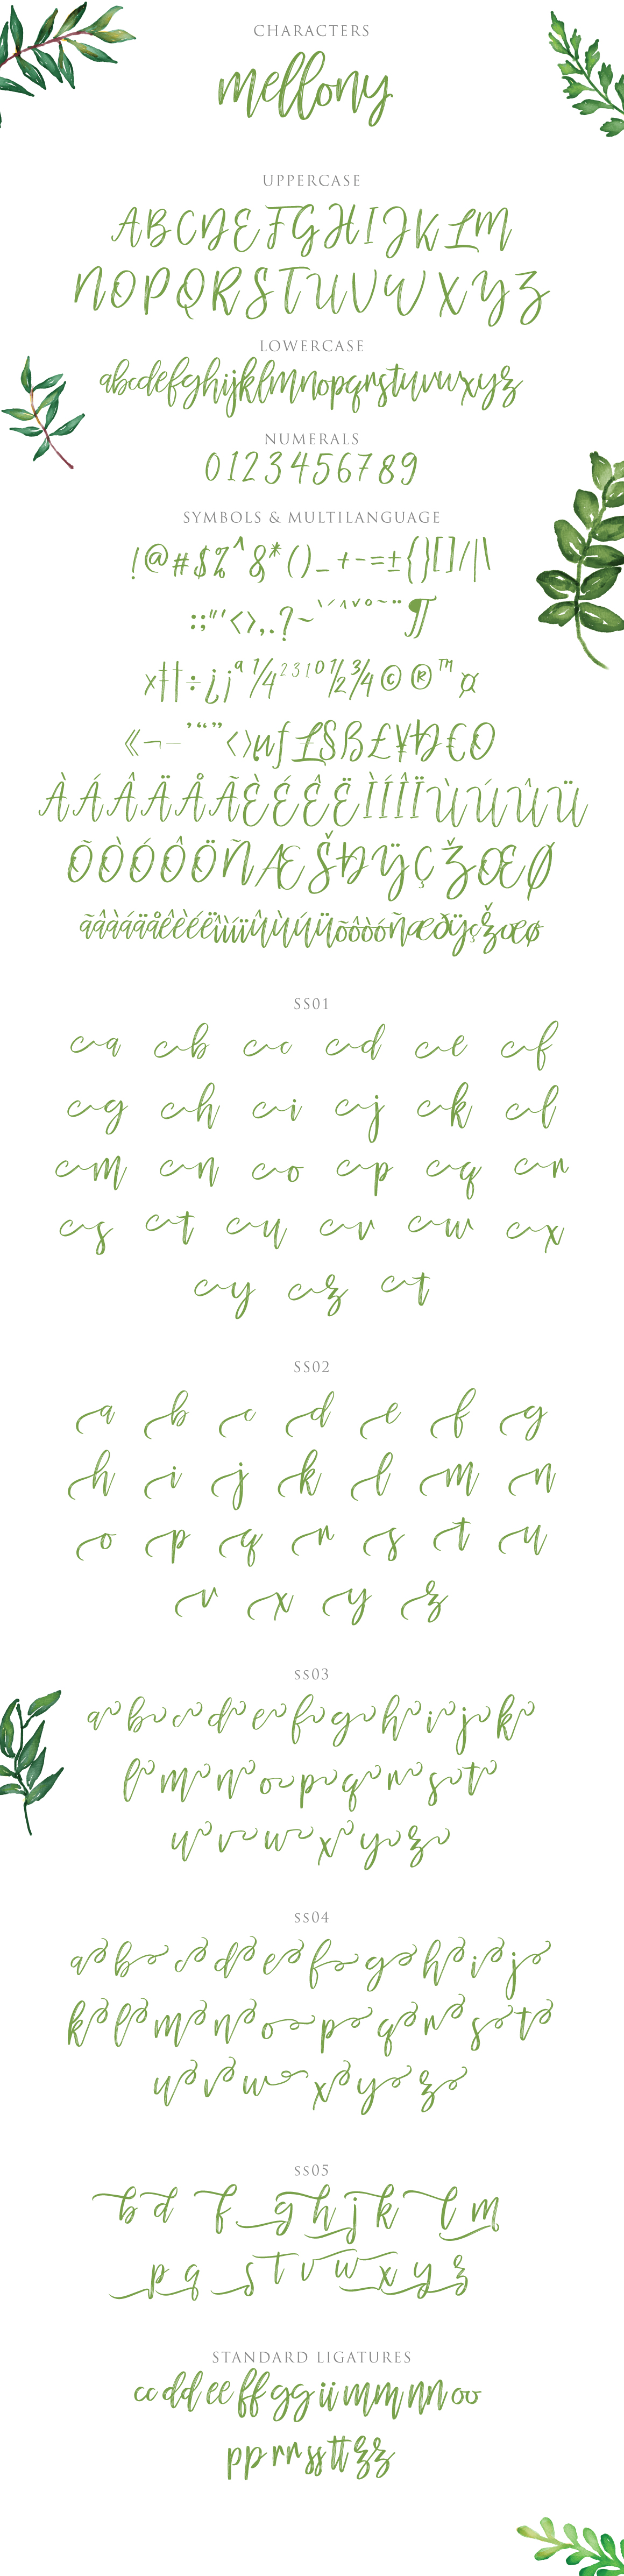 CHARACTERS
mellony
UPPERCASE
ABCDEFGHIJKLM
NOPQRSTUVWXYZ
LOWERCASE
abcdefghijklmnopqrstuvwxyz
NUMERALS
0123456789
SYMBOLS & MULTILANGUAGE
!@#$%^&*()_+-=±{}[]/|\
:;"'<>,.?~`´ˆˇ˘°˜¯¨¶
×†‡÷¿¡ª¼²³¹⁰½¾©®™¤
«¬—’“”‹›µƒ£§ß£¥Đ€O
ÀÁÂÄÅÃÈÉÊËÌÍÎÏÙÚÛÜ
ÕÒÓÔÖÑÆŠĐŸÇŽŒØ
ãâàáäåêèéëìíïîûùúüõôòóñæðÿçžœø
SS01
a b c d e f
g h i j k l
m n o p q r
s t u v w x
y z t
SS02
a b c d e f g
h i j k l m n
o p q r s t u
v x y z
SS03
a b c d e f g h i j k
l m n o p q r s t
u v w x y z
SS04
a b c d e f g h i j
k l m n o p q r s t
u v w x y z
SS05
b d f g h j k l m
p q s t v w x y z
STANDARD LIGATURES
cc dd ee ff gg ii mm nn oo
pp rr ss tt zz